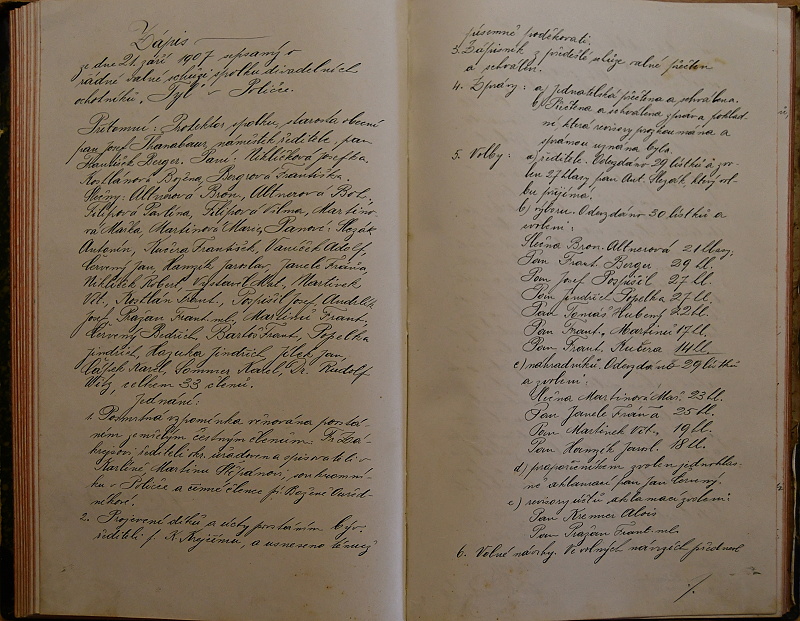 Zápis
ze dne 21. září 1907 sepsaný o
řádné valné schůzi spolku divadelních
ochotníků „Tyl" v Poličce.
Přítomni: Protektor spolku, starosta obecní
pan Josef Thanabaur, náměstek ředitele, pan
František Berger. Paní: Niklíčková Josefka,
Rostlánová Božena, Bergrová Františka.
Slečny: Altnerová Bron., Altnerová Bož.,
Filipová Pavlína, Filipová Vilma, Martino-
vá Mařa, Martinůová Marie, Pánové: Slezák
Antonín, Kučera František, Vaníček Adolf,
Červený Jan, Hanyk Jaroslav, Janele Fráňa,
Niklíček Robert, Martinek
Vět., Rostlán Frant., Pospíšil Josef, Andrlík
Josef, Pražan Frant. ml., Martinů Frant.,
Červený Bedřich, Bartoš Frant., Popelka
Jindřich, Hazuka Jindřich, Jílek Jan,
Čápek Karel, Sommer Karel, Dr. Rudolf
celkem 33 členů.
Jednání:
1. Posmrtná vzpomínka věnována povstá-
ním zemřelým čestným členům: Fr. Za-
krejsovi řediteli okr. úřadoven a spisovateli v
Karlíně, Martinu Štěpánovi, soukromní-
ku v Poličce a čemé člence pí. Boženě
2. Projevení díků a úcty povstáním býv.
řediteli p. K. Krejčímu, a usneseno témuž
písemně poděkovati.
3. Zápisník z předešlé schůze valné přečten
a schválen.
4. Zprávy: a) jednatelská přečtena a schválena.
b) Přečtena a schválena zpráva poklad-
ní, která revisory prozkoumána a
správnou uznána byla.
5. Volby: a) ředitele. Odevzdáno 29 lístků a zvo-
len 27 hlasy pan Ant. Slezák, který vol-
bu přijímá.
b) výboru. Odevzdáno 30 lístků a
zvoleni:
Slečna Bron. Altnerová 21 hlasy,
Pan Frant. Berger 29 hl.
Pan Josef Pospíšil 27 hl.
Pan Jindřich Popelka 27 hl.
Pan Tomáš Hubený 22 hl.
Pan Frant. Martinů 17 hl.
Pan Frant. Kučera 14 hl.
c) náhradníků. Odevzdáno 29 lístků
a zvoleni:
Slečna Martinůová Mař. 23 hl.
Pan Janele Fráňa 25 hl.
Pan Martinek Vět. 19 hl.
Pan Hanyk Jarol. 18 hl.
d) praporečníkem zvolen jednohlas-
ně aklamací pan Jan Červený.
e) revisory účtů aklamací zvoleni:
Pan Kremer Alois
Pan Pražan Frant. ml.
6. Volné návrhy. Ve volných návrzích přednesl
./.